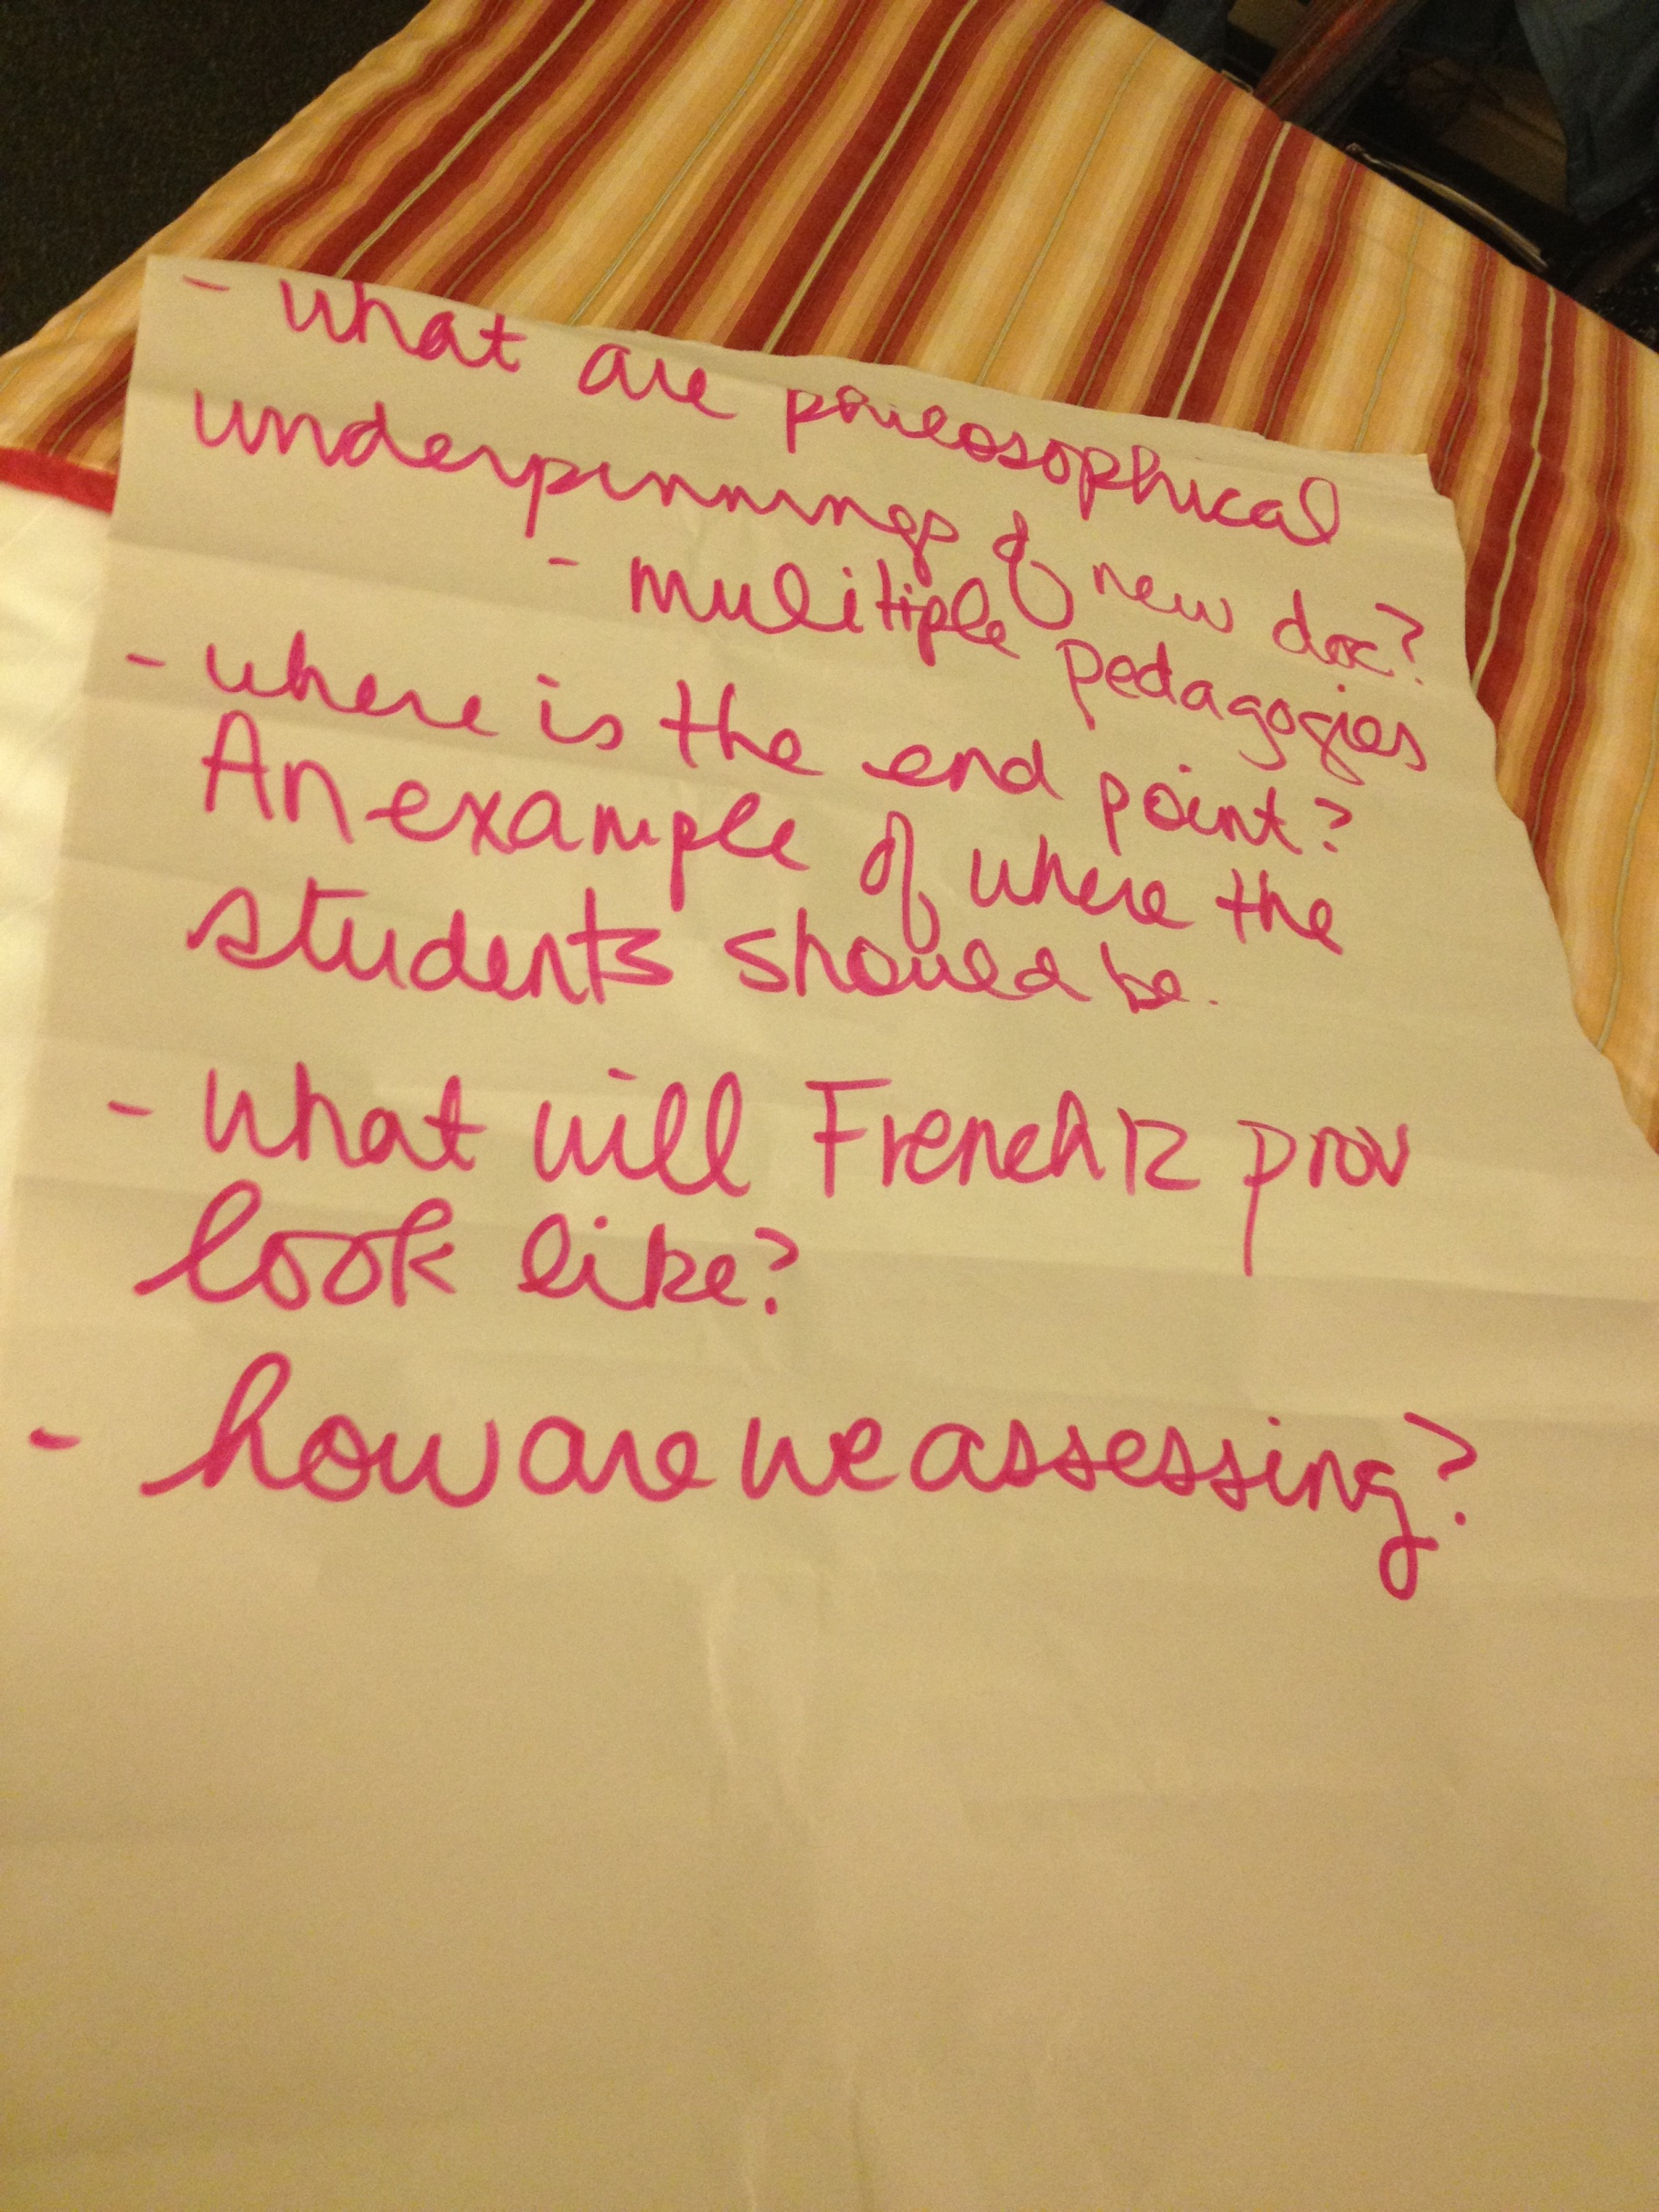 - what are philosophical
underpinnings of new doc?
- mulitiple pedagogies
- where is the end point?
An example of where the
students should be.
- what will French 12 prov
look like?
- how are we assessing?